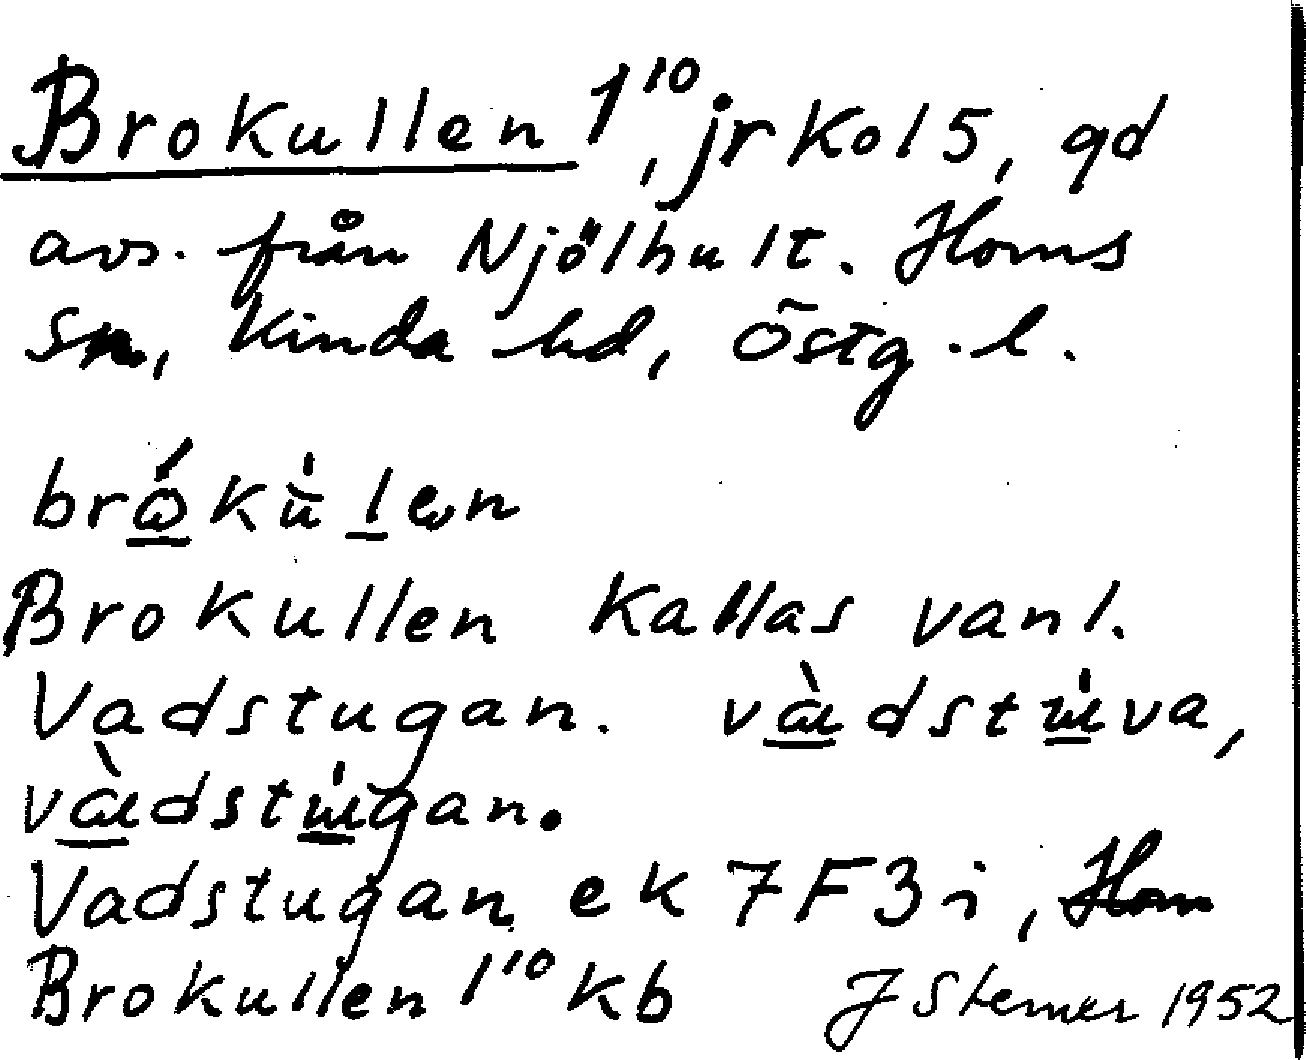 Brokullen 1¹⁰, jrkol 5, gd
avs. från Njölhult. Horns
sn, Kinda hd, Östg. l.
brǿkù̈len
Brokullen kallas vanl.
Vadstugan. và̱dstu̱va,
và̱dstu̱gan.
Vadstugan ek 7F3i, Horn
Brokullen 1¹⁰ kb J Sterner 1952